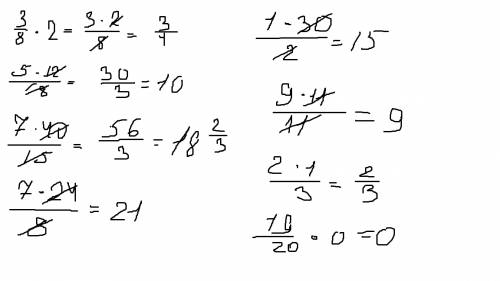 3/8 · 2 = 3·2/8 = 3/4
5·12/18 = 30/3 = 10
7·40/15 = 56/3 = 18 2/3
7·24/8 = 21
1·30/2 = 15
9·11/11 = 9
2·1/3 = 2/3
10/20 · 0 = 0